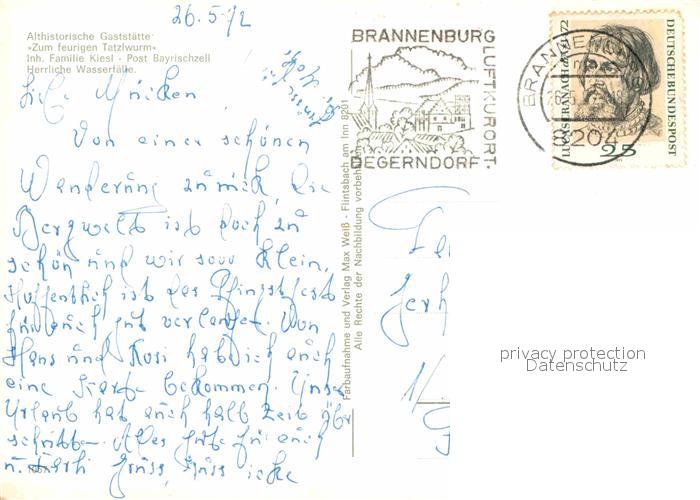 26.5.72
Althistorische Gaststätte
»Zum feurigen Tatzlwurm«
Inh. Familie Kiesl - Post Bayrischzell
Herrliche Wasserfälle.
Von einer schönen
Wanderung zurück. Die
Bergwelt ist doch zu
schön und wir sooo klein,
Hoffentlich ist das Pfingstfest
für euch gut verlaufen. Von
Hans und Rosi hab ich auch
eine Karte bekommen. Unser
Urlaub hat auch halb Zeit über
schritten. Alles gute für euch
Farbaufnahme und Verlag Max Weiß - Flintsbach am Inn 8201
Alle Rechte der Nachbildung vorbehalten
BRANNENBURG
LUFTKURORT
DEGERNDORF
BRANNENBURG
8204
LUCAS CRANACH d.Ä. 1472
DEUTSCHE BUNDESPOST
25
privacy protection
Datenschutz